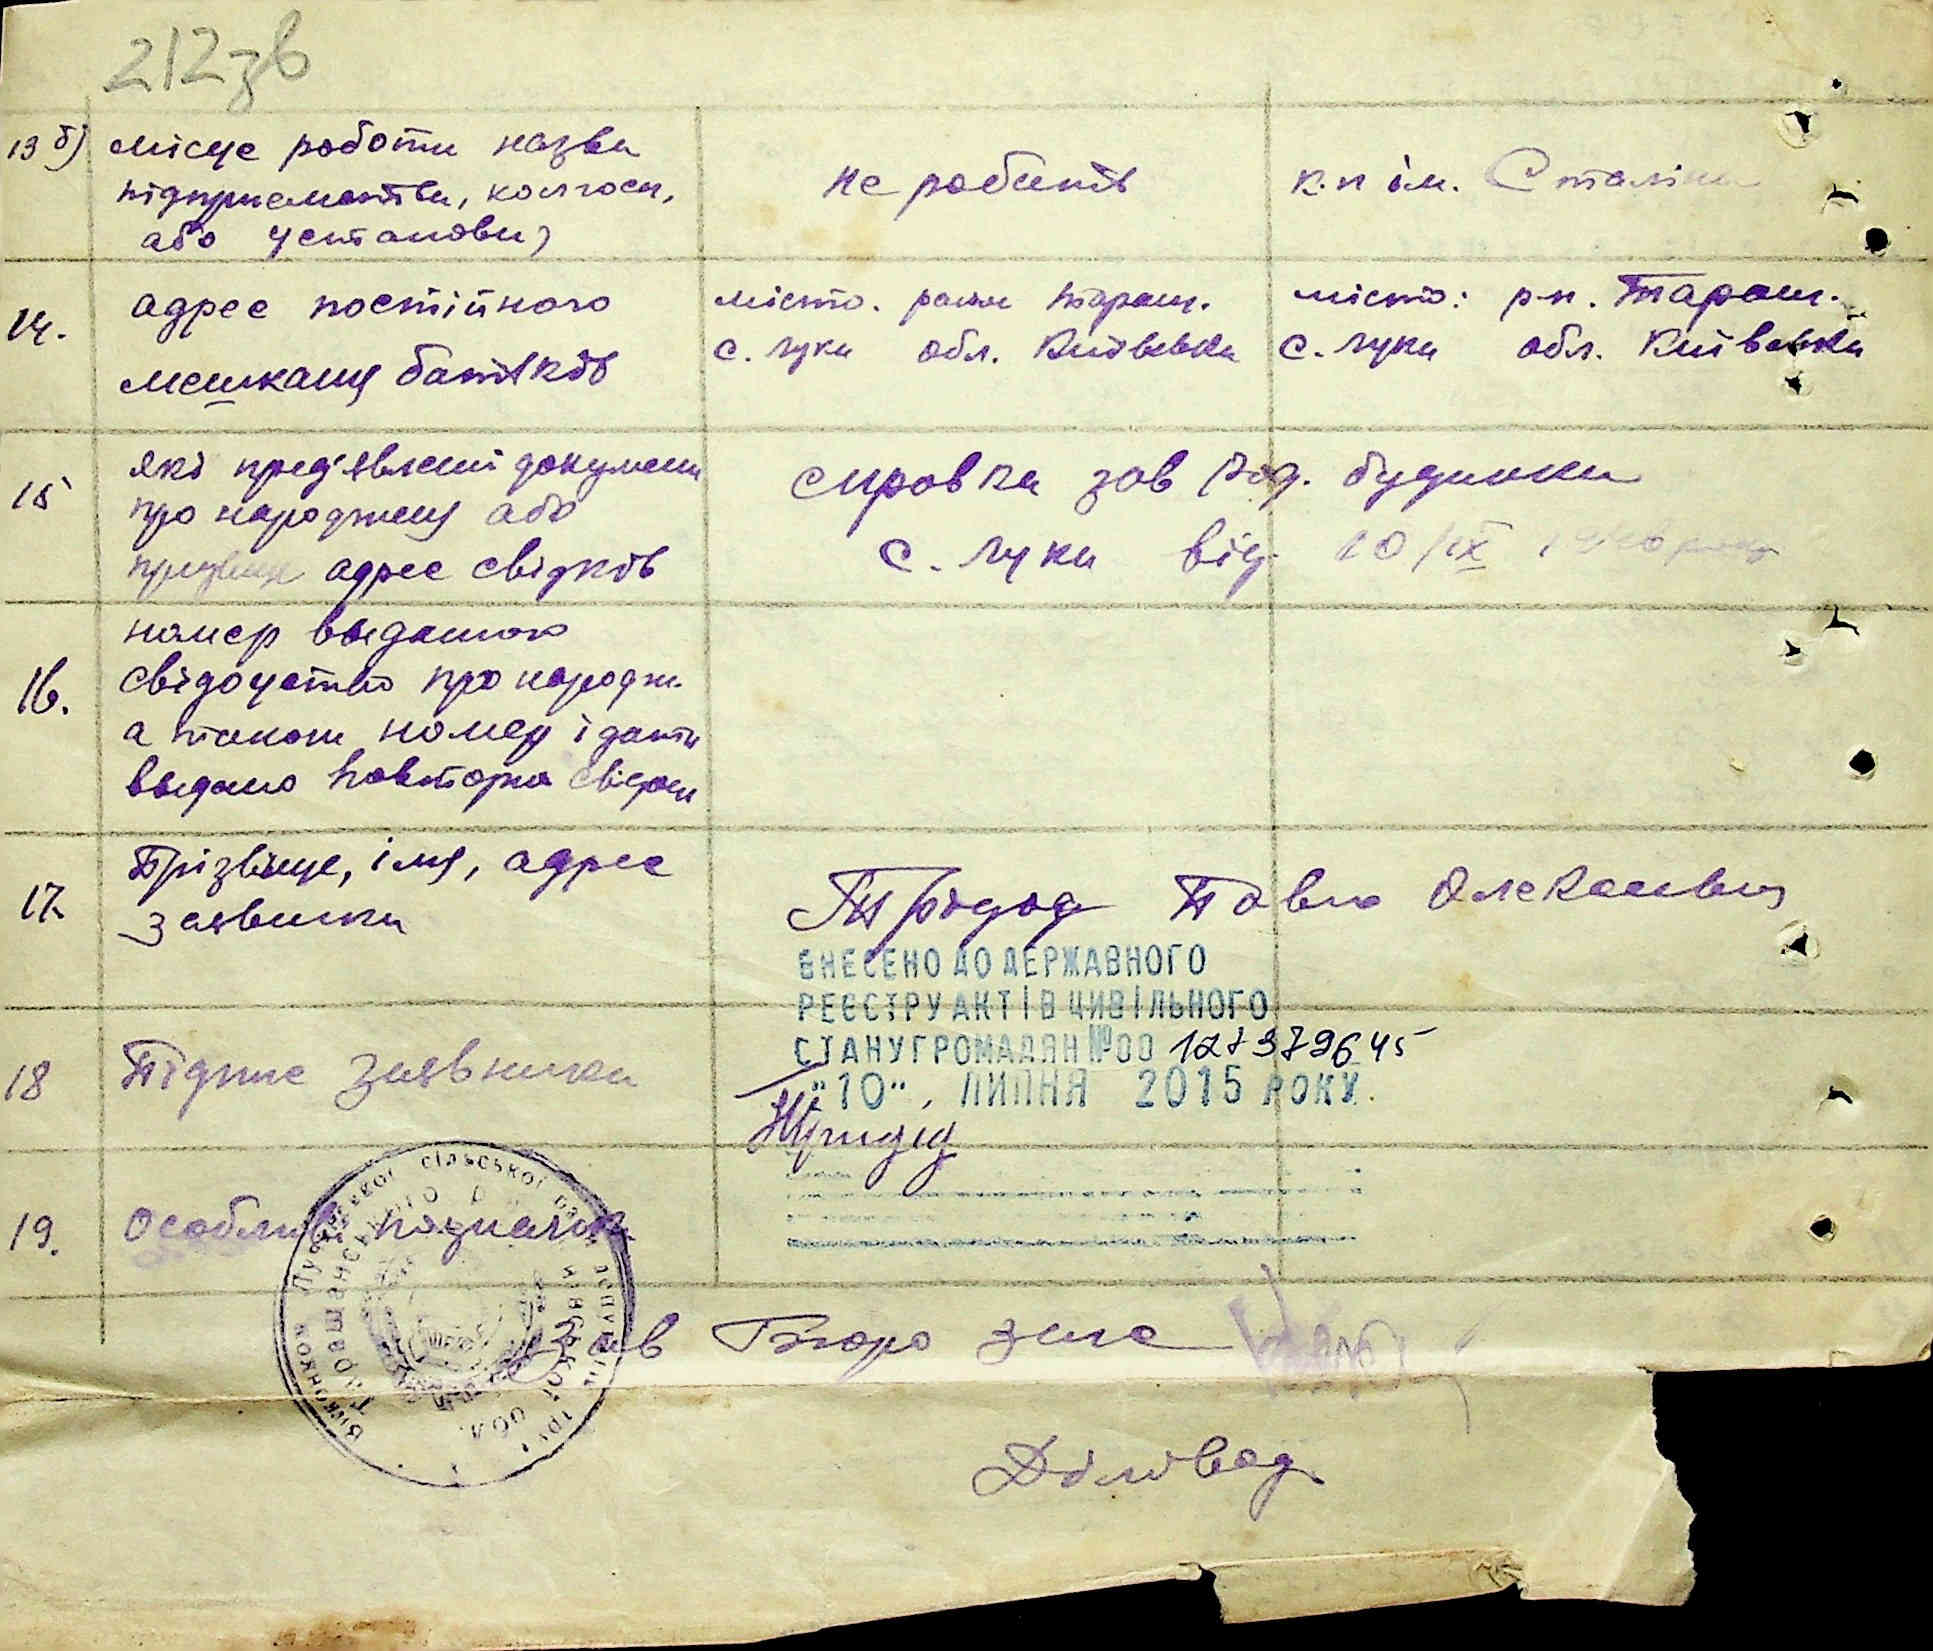 212зв
13 б) місце роботи назва
підприємства, колгосп,
або установи)
не робить
к.п ім. Сталіна
14.
адрес постійного
мешканя батьків
місто. район Тараш.
с. Лука обл. Київська
місто: р-н. Тараш.
с. Лука обл. Київська
15
які пред'явлені документи
про народженя або
прізвище адрес свідків
справка зав род. будинка
с. Лука від 10/IX
16.
номер виданого
свідоцтво про народж.
а також номер і дата
видано повторно свідоц
17.
Прізвище, імя, адрес
заявника
Павло Олексієвич
ВНЕСЕНО ДО ДЕРЖАВНОГО
РЕЄСТРУ АКТІВ ЦИВІЛЬНОГО
СТАНУ ГРОМАДЯН №00 127379645
"10", ЛИПНЯ 2015 РОКУ.
18
Підпис заявника
19.
Особливі позначки
Зав Бюро загс
Діловод